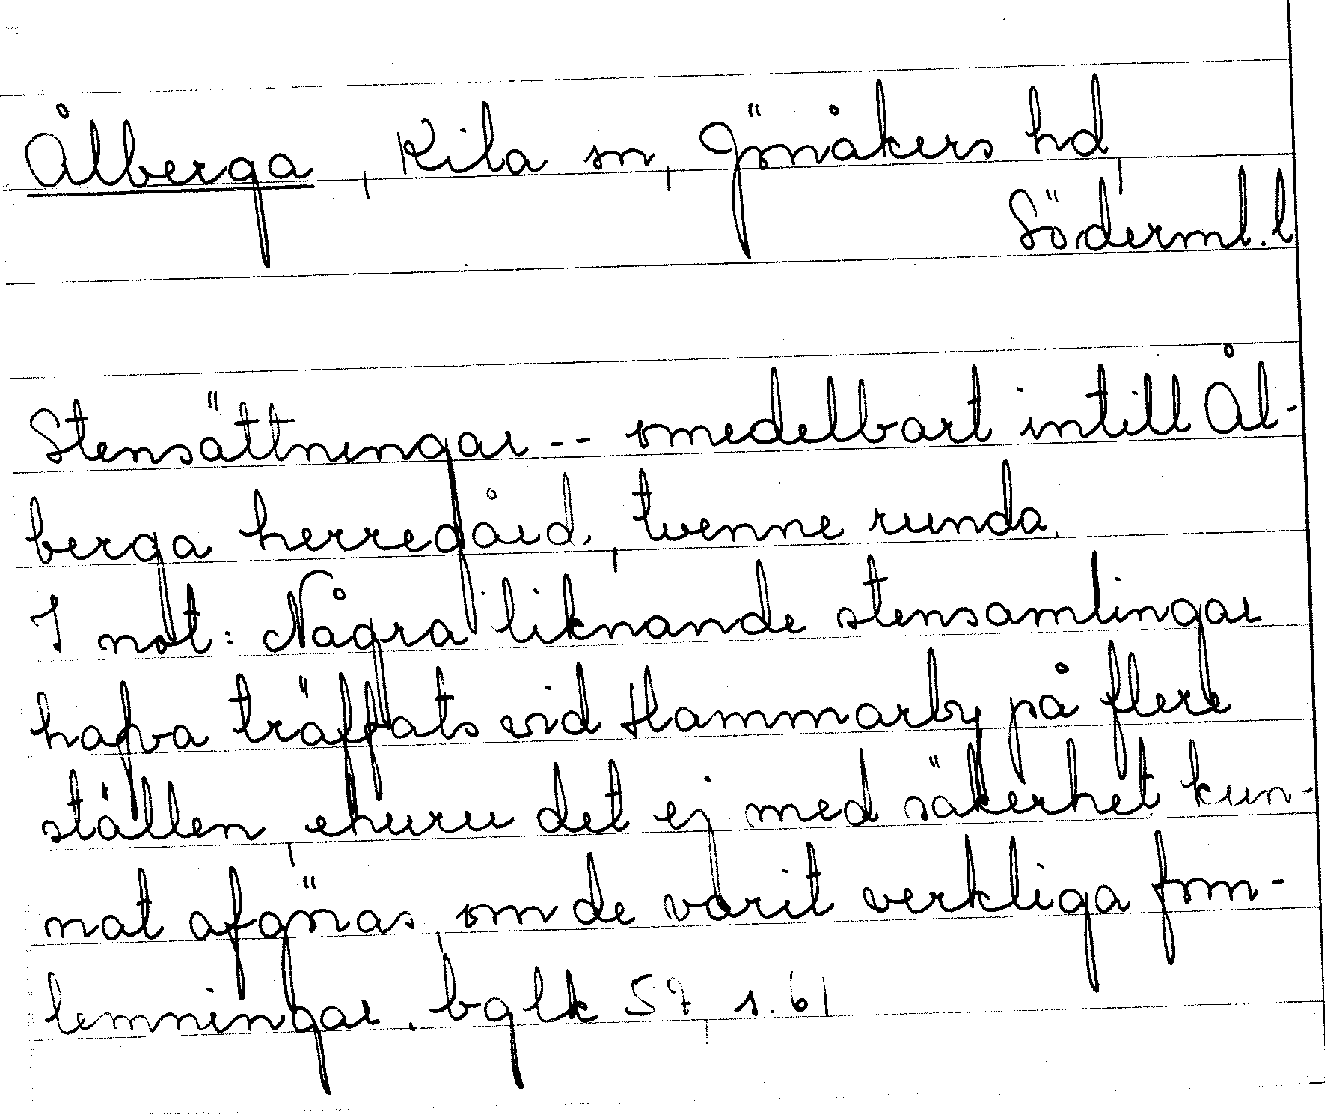 Ålberga, Kila sn, Jönåkers hd,
Söderml. l
Stensättningar -- omedelbart intill Ål-
berga herregård, tvenne runda.
I not: Några liknande stensamlingar
hafva träffats vid Hammarby på flere
ställen, ehuru det ej med säkerhet kun-
nat afgöras, om de varit verkliga forn-
lemningar. bglk 57, s. 61